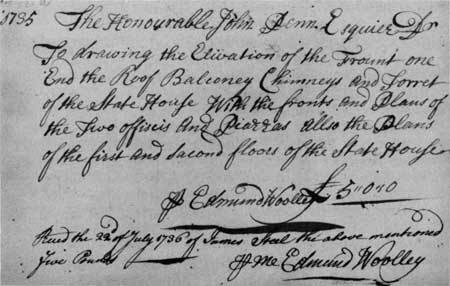 1735 The Honourable John Penn Esquier Dr
To drawing the Elivation of the Frount one
End the Roof Balconey Chimneys and Torret
of the State House With the fronts and Plans of
the Two offiscis And Piazzas allso the Plans
of the first and Second floors of the State House
£ 5"0"0
⅌ Edmund Woolley
Recd the 22d of July 1736 of James Steal the above mentioned
Five Pounds ⅌ Me Edmund Woolley